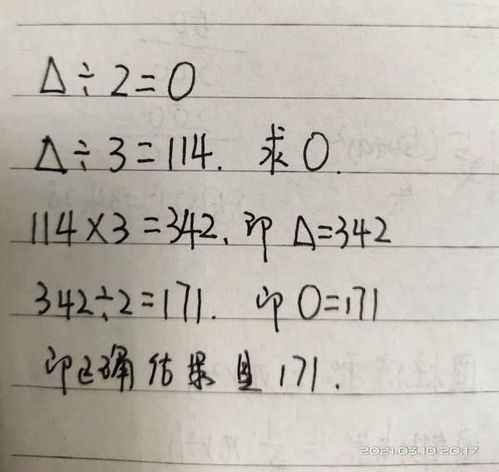 Δ÷2=O
Δ÷3=114. 求O.
114×3=342. 即 Δ=342
342÷2=171. 即 O=171
即正确结果是171.
2021.03.10 20:17